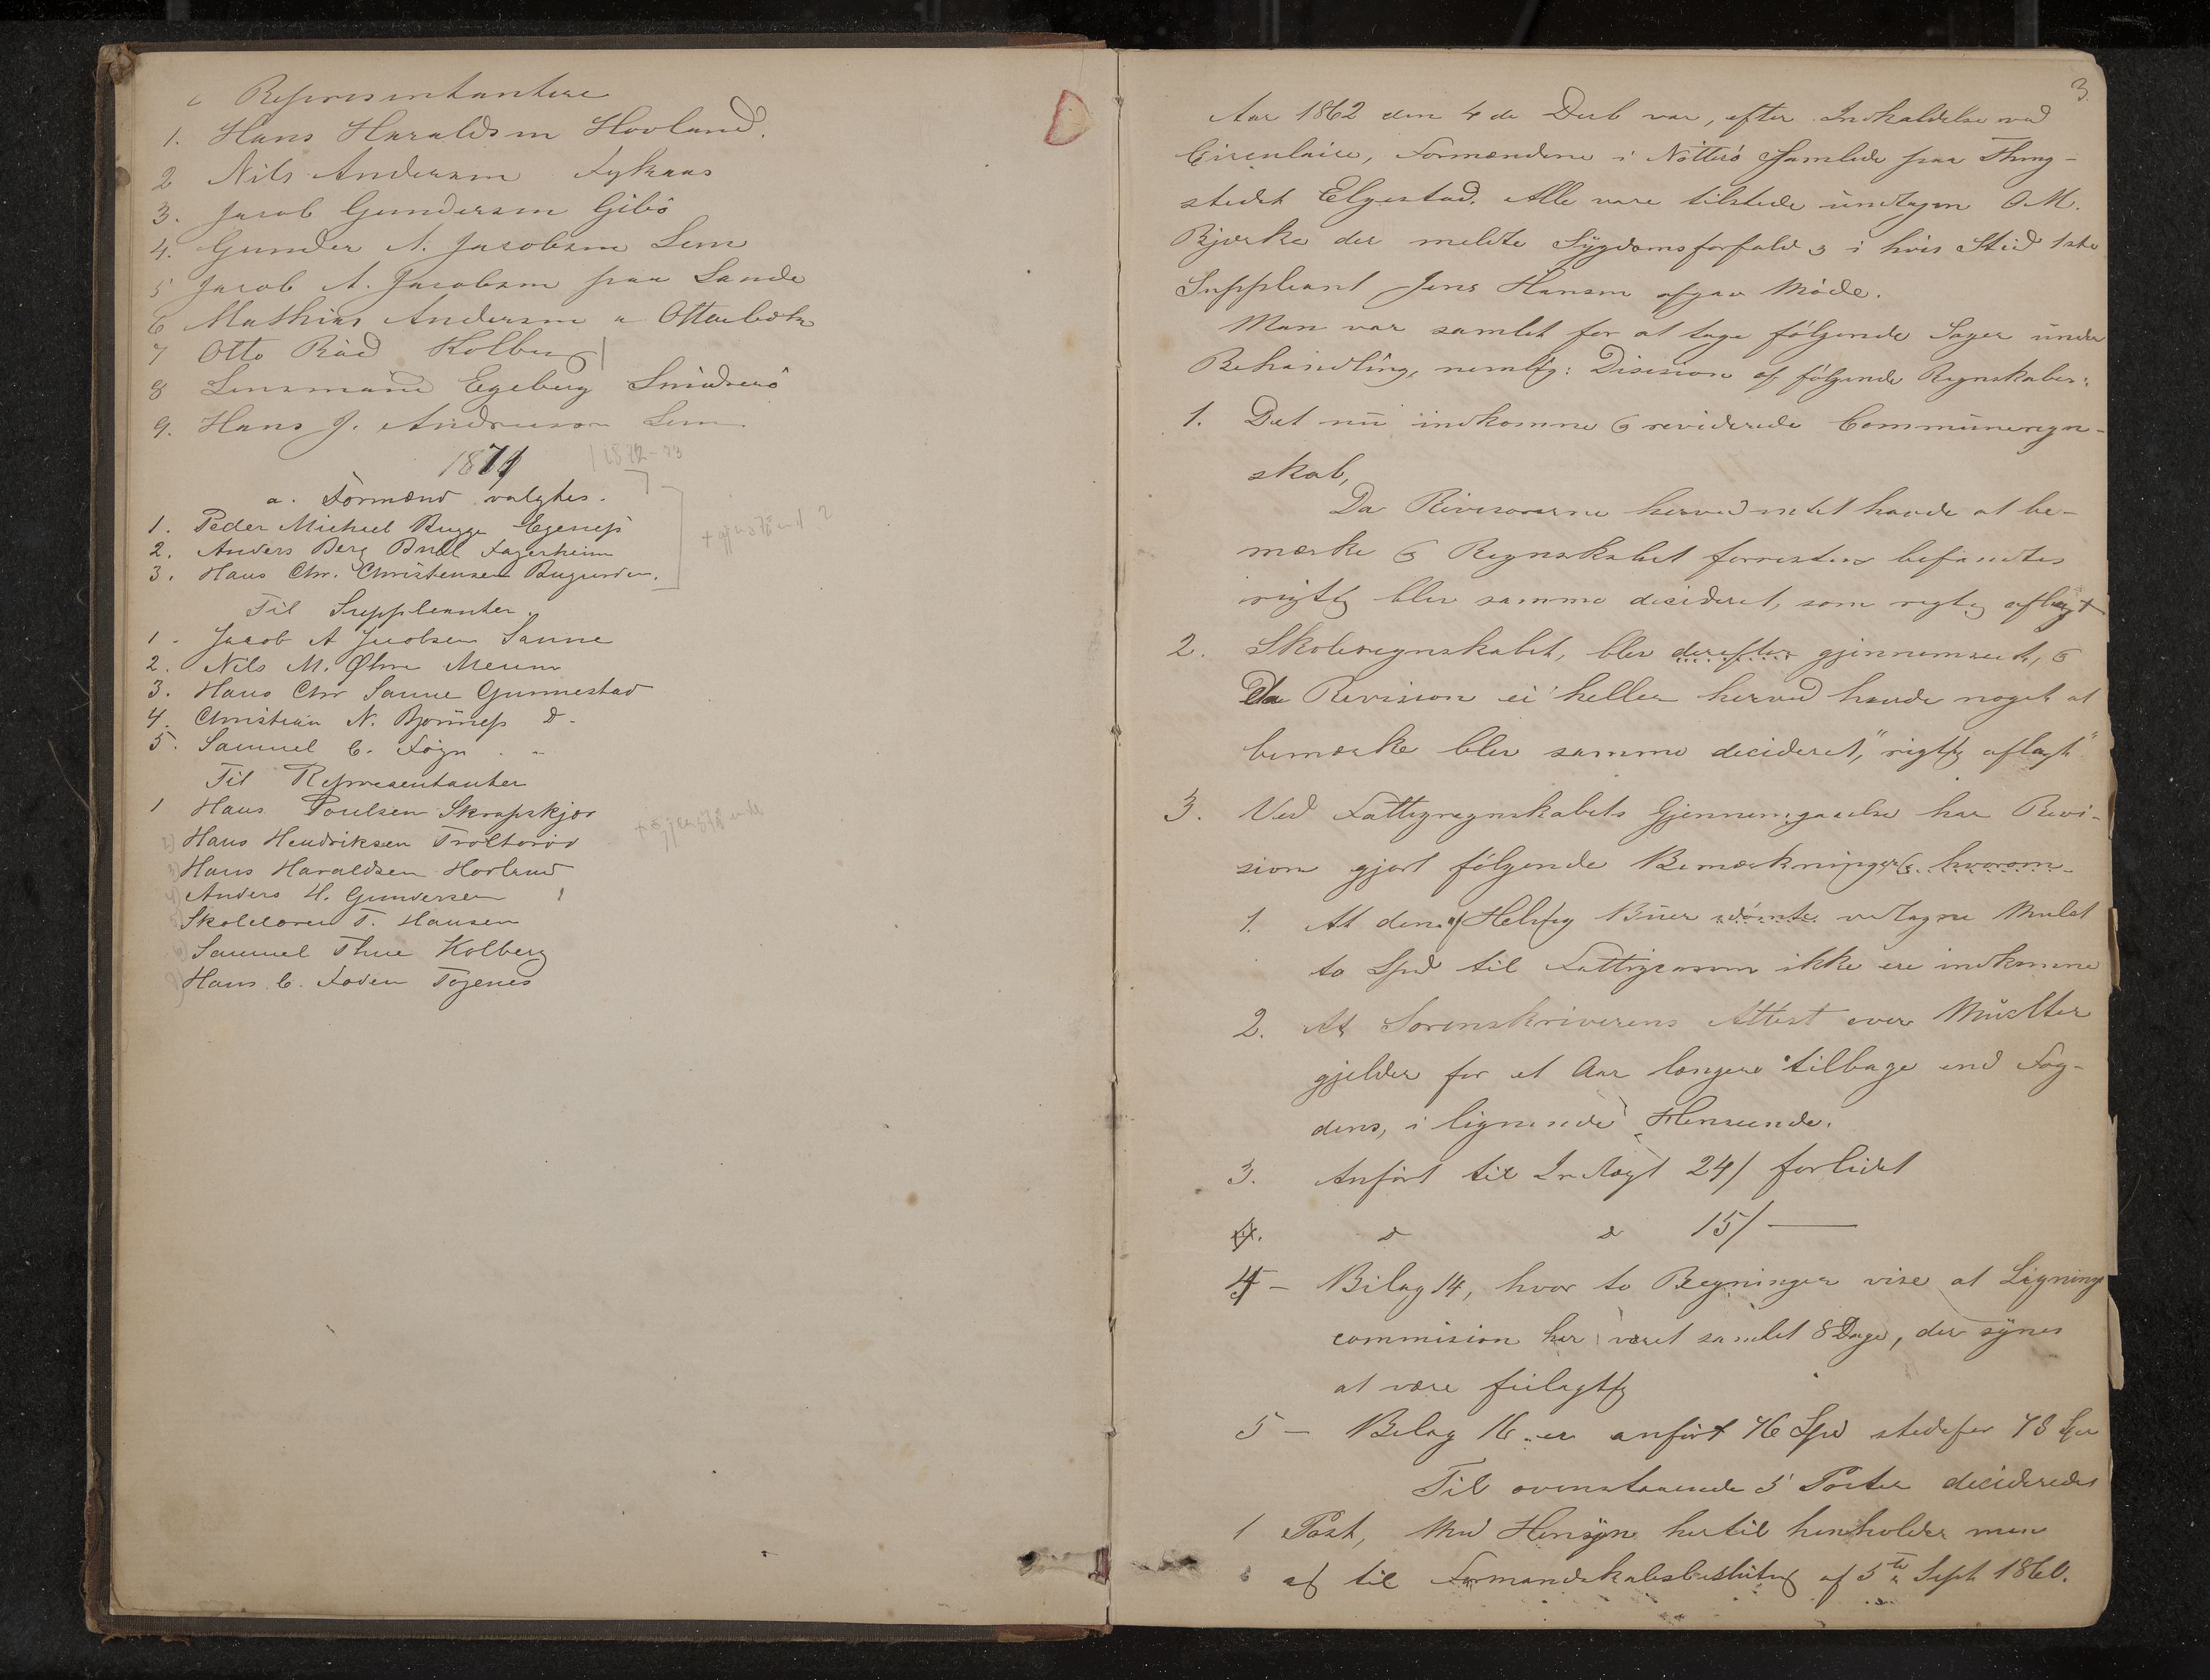 c Representantere
1. Hans Haraldsen Hovland.
2 Nils Andersen
3. Jacob Gundersen Gibö
4. Gunder A. Jacobsen Lem
5 Jacob A. Jacobsen paa Sande
6 Mathias Andersen
7 Otto Röed Kolberg
8 Lensmand Egeberg
9. Hans J. Andresson Lem
1871 1872-73
a. Formænd valgtes.
1. Peder Michael Bugge Egeness
2. Anders Berg Bull Fagerheim
3. Hans Chr. Christensen
Til Suppleanter.
1. Jacob A Jacobsen Sanne
2. Nils M. Øhre Meum
3. Hans Chr Sanne Gunnestad
4. Christian N. Bjönness D-
5. Samuel C. Föyn
Til Representanter
1 Hans Poulsen Skrapskjær
2) Hans Hendriksen
3) Hans Haraldsen Hovland
4) Anders H. Gundersen
5) Skolelærer T. Hansen
6) Samuel Thue Kolberg
Hans C. Foden Togenes
3.
Aar 1862 den 4de Decb var, efter Indkaldelse ved
Circulaire, Formændene i Nötterö samlede paa Thing-
stedet Elgestad. Alle vare tilstede undtagen O. M.
Bjerke der meldte Sygdomsforfald & i hvis Sted 1ste
Suppleant Jens Hansen afgav Möde.
Man var samlet for at tage fölgende Sager under
Behandling, nemlig: Dicision af fölgende Regnskaber:
1. Det nu indkomne & reviderede Communeregn-
skab,
Da Revisorerne herved intet havde at be-
mærke & Regnskabet forresten befandtes
rigtig blev samme decideret, som rigtig aflagt
2. Skoleregnskabet, blev derefter gjennemseet, &
Da Revision ei heller herved havde noget at
bemærke blev samme decideret, "rigtig aflagt"
3. Ved Fattigregnskabets Gjennemgaaelse har Revi-
sion gjort fölgende Bemærkninger & hvorom
1. At den af Helvig Buer idömte vedtagne Mulct
to Spd til Fattigcassen ikke ere indkomne
2. At Sorenskriverens Attest over Mulcter
gjelder for et Aar længere tilbage end Fog-
dens, i lignende Henseende.
3. Anfört til Indtægt 24/ forlidet
4. D D 15/ —
4 - Bilag 14, hvor to Regninger vise at Lignings
commision har været samlet 8 Dage, der synes
at være feilagtig
5 - Bilag 16 er anfört 76 Spd stedefor 78 Spd
Til ovenstaaende 5 Poster decideredes
1 Post, Med Hensyn hertil henholder man
sig til Formandskabsbeslutng af 5te Sept 1860.